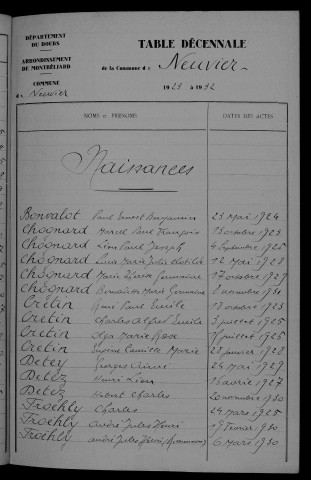 DÉPARTEMENT
DU DOUBS
ARRONDISSEMENT
DE MONTBÉLIARD
COMMUNE
de Neuvier
TABLE DÉCENNALE
de la Commune de Neuvier
1923 à 1932
NOMS et PRÉNOMS DATES DES ACTES
Naissances
Bonvalot Paul Ernest Benjamin 23 Mai 1924
Chognard Marcel Paul François 13 octobre 1923
Chognard Léon Paul Joseph 4 Septembre 1925
Chognard Marie Julie Clotilde 12 Mai 1928
Chognard Marie Thérèse Germaine 17 octobre 1929
Chognard Bernadette Marie Germaine 8 novembre 1930
Cretin Henri Paul Emile 18 octobre 1923
Cretin Charles Alfred Emile 3 juillet 1925
Cretin Olga Marie Rose juillet 1925
Cretin Eugène Camille Marie 28 janvier 1928
Detey Georges Aimé 24 Mai 1929
Detez Henri Léon 16 avril 1927
Detez Hubert Charles 20 novembre 1930
Froehly Charles 24 mars 1925
Froehly André Jules Henri 19 février 1930
Froehly André Jules Henri 6 Mars 1930